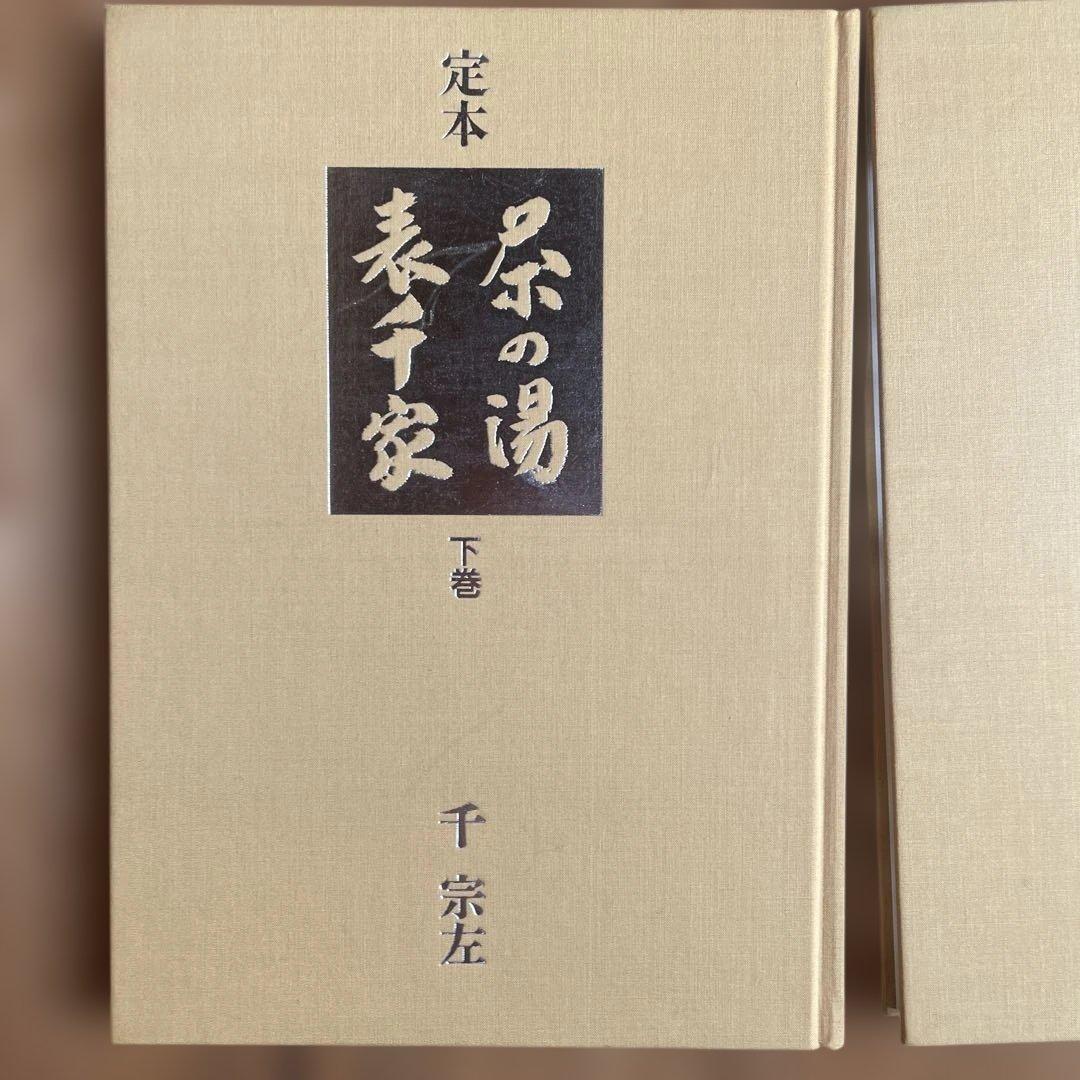 定本
茶の湯
表千家
下巻
千 宗左